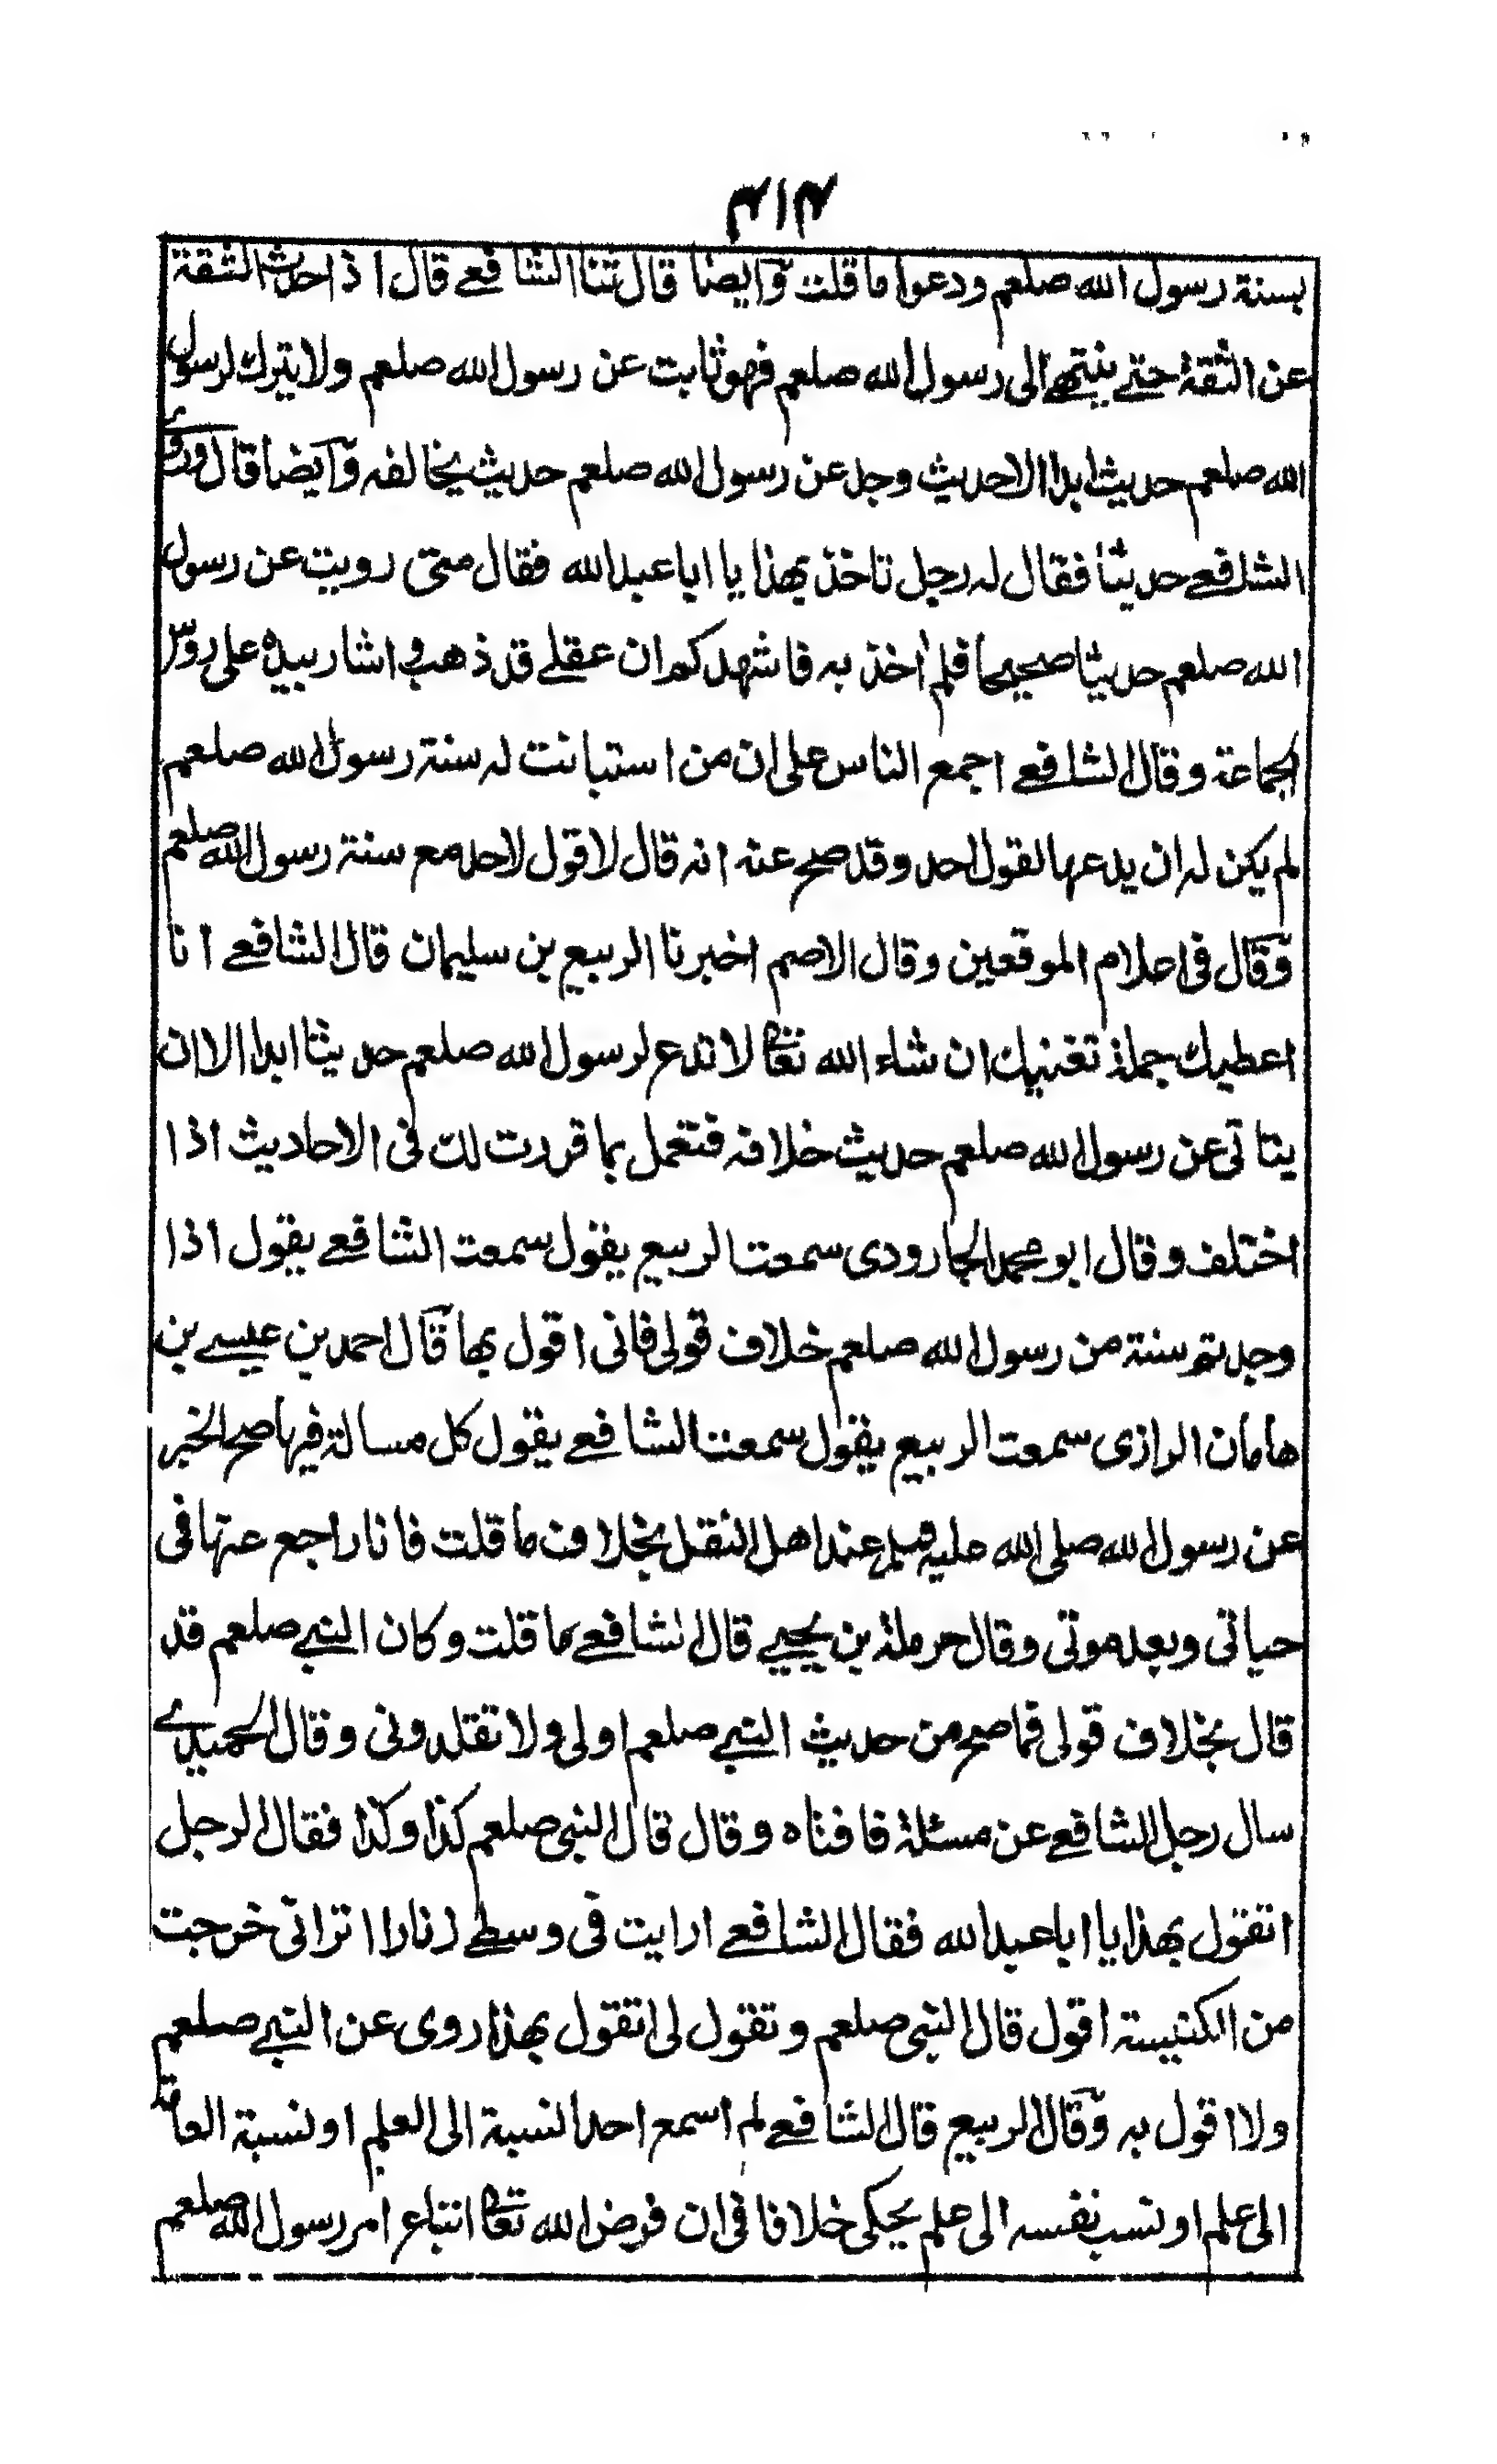 ۴۱۴
بسنة رسول الله صلعم ودعوا ما قلت وايضا قال ثنا الشافعے قال اذا حدث الثقة
عن الثقة حتے ينتهے الى رسول الله صلعم فهو ثابت عن رسول الله صلعم ولا يترك لرسول
الله صلعم حديث ابدا الا حديث وجد عن رسول الله صلعم حديث يخالفه وايضا قال وروے
الشافعے حديثا فقال له رجل تاخذ بهذا يا ابا عبد الله فقال متى رويت عن رسول
الله صلعم حديثا صحيحا فلم اٰخذ به فاشهدكم ان عقلے قد ذهب واشار بيده على روس
الجماعة وقال الشافعے اجمع الناس على ان من استبانت له سنة رسول الله صلعم
لم يكن له ان يدعها لقول احد وقد صح عنه انه قال لا قول لاحد مع سنة رسول الله صلعم
وقال فى اعلام الموقعين وقال الاصم اخبرنا الربيع بن سليمان قال الشافعے انا
اعطيك جملة تغنيك ان شاء الله تعالى لا تدع لرسول الله صلعم حديثا ابدا الا ان
يتاتى عن رسول الله صلعم حديث خلافه فتعمل بما قررت لك فى الاحاديث اذا
اختلف وقال ابو محمد الجارودى سمعت الربيع يقول سمعت الشافعے يقول اذا
وجدتم سنة من رسول الله صلعم خلاف قولى فانى اقول بها قال احمد بن عيسے بن
هامان الرازى سمعت الربيع يقول سمعت الشافعے يقول كل مسالة فيها صح الخبر
عن رسول الله صلى الله عليه وسلم عند اهل النقل بخلاف ما قلت فانا راجع عنها فى
حياتى وبعد موتى وقال حرملة بن يحيے قال الشافعے كما قلت وكان النبے صلعم قد
قال بخلاف قولى فما صح من حديث النبے صلعم اولى ولا تقلدونى وقال الحميدے
سال رجل الشافعے عن مسئلة فافتاه وقال قال النبى صلعم كذا وكذا فقال الرجل
اتقول بهذا يا ابا عبد الله فقال الشافعے ارايت فى وسطے زنارا اترانى خرجت
من الكنيسة اقول قال النبى صلعم وتقول لى اتقول بهذا روى عن النبے صلعم
ولا اقول به وقال الربيع قال الشافعے لم اسمع احدا نسبة الى العلم او نسبة العامة
الى علم او نسب نفسه الى علم يحكى خلافا فى ان فرض الله تعالى اتباع امر رسول الله صلعم